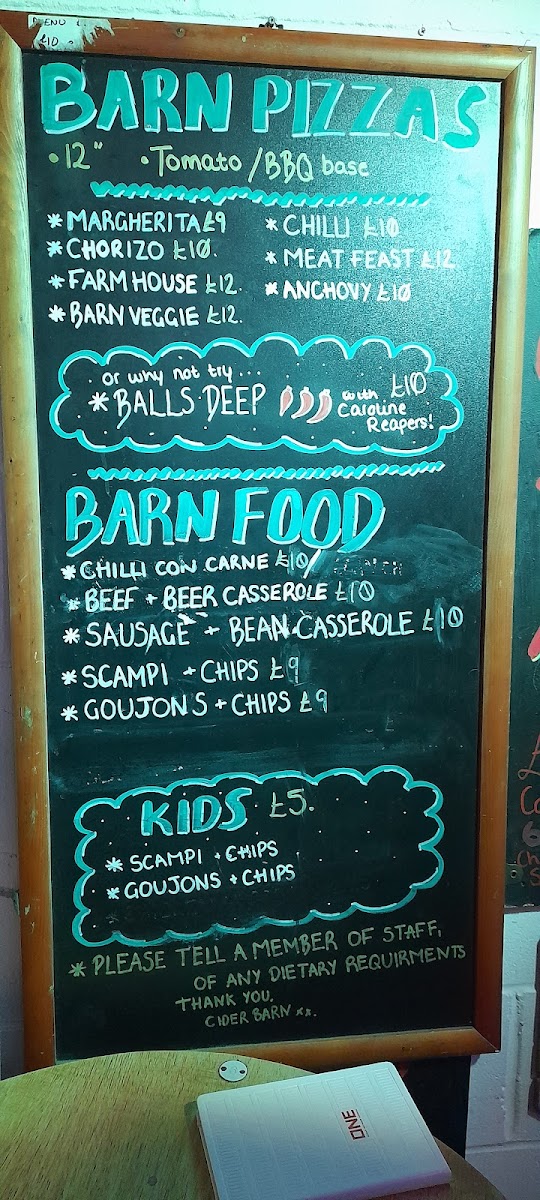 MENU
£10
BARN PIZZAS
• 12" • Tomato / BBQ base
* MARGHERITA £9
* CHORIZO £10.
* FARMHOUSE £12.
* BARN VEGGIE £12.
* CHILLI £10
* MEAT FEAST £12
* ANCHOVY £10
or why not try...
* BALLS DEEP with Caroline Reapers! £10
BARN FOOD
* CHILLI CON CARNE £10/
* BEEF + BEER CASSEROLE £10
* SAUSAGE + BEAN CASSEROLE £10
* SCAMPI + CHIPS £9
* GOUJONS + CHIPS £9
KIDS £5.
* SCAMPI + CHIPS
* GOUJONS + CHIPS
* PLEASE TELL A MEMBER OF STAFF,
OF ANY DIETARY REQUIRMENTS
THANK YOU.
CIDER BARN xx.
ONE